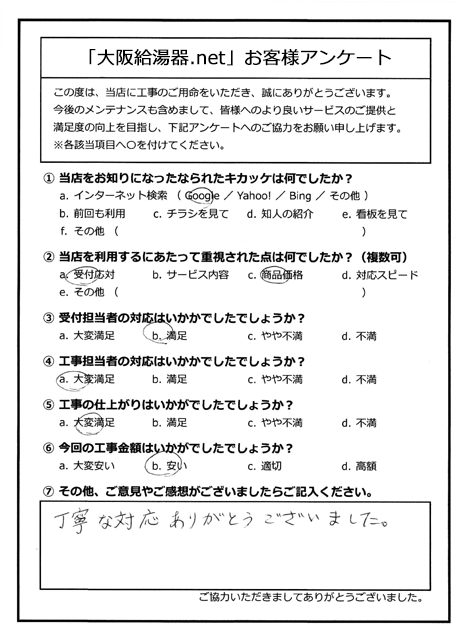 「大阪給湯器.net」お客様アンケート
この度は、当店に工事のご用命をいただき、誠にありがとうございます。
今後のメンテナンスも含めまして、皆様へのより良いサービスのご提供と
満足度の向上を目指し、下記アンケートへのご協力をお願い申し上げます。
※各該当項目へ〇を付けてください。
① 当店をお知りになったなられたキカッケは何でしたか？
a. インターネット検索 （ Google ／ Yahoo! ／ Bing ／ その他 ）
b. 前回も利用 c. チラシを見て d. 知人の紹介 e. 看板を見て
f. その他 （ ）
② 当店を利用するにあたって重視された点は何でしたか？（複数可）
a. 受付応対 b. サービス内容 c. 商品価格 d. 対応スピード
e. その他 （ ）
③ 受付担当者の対応はいかかでしたでしょうか？
a. 大変満足 b. 満足 c. やや不満 d. 不満
④ 工事担当者の対応はいかがでしたでしょうか？
a. 大変満足 b. 満足 c. やや不満 d. 不満
⑤ 工事の仕上がりはいかがでしたでしょうか？
a. 大変満足 b. 満足 c. やや不満 d. 不満
⑥ 今回の工事金額はいかがでしたでしょうか？
a. 大変安い b. 安い c. 適切 d. 高額
⑦ その他、ご意見やご感想がございましたらご記入ください。
丁寧な対応ありがとうございました。
ご協力いただきましてありがとうございました。